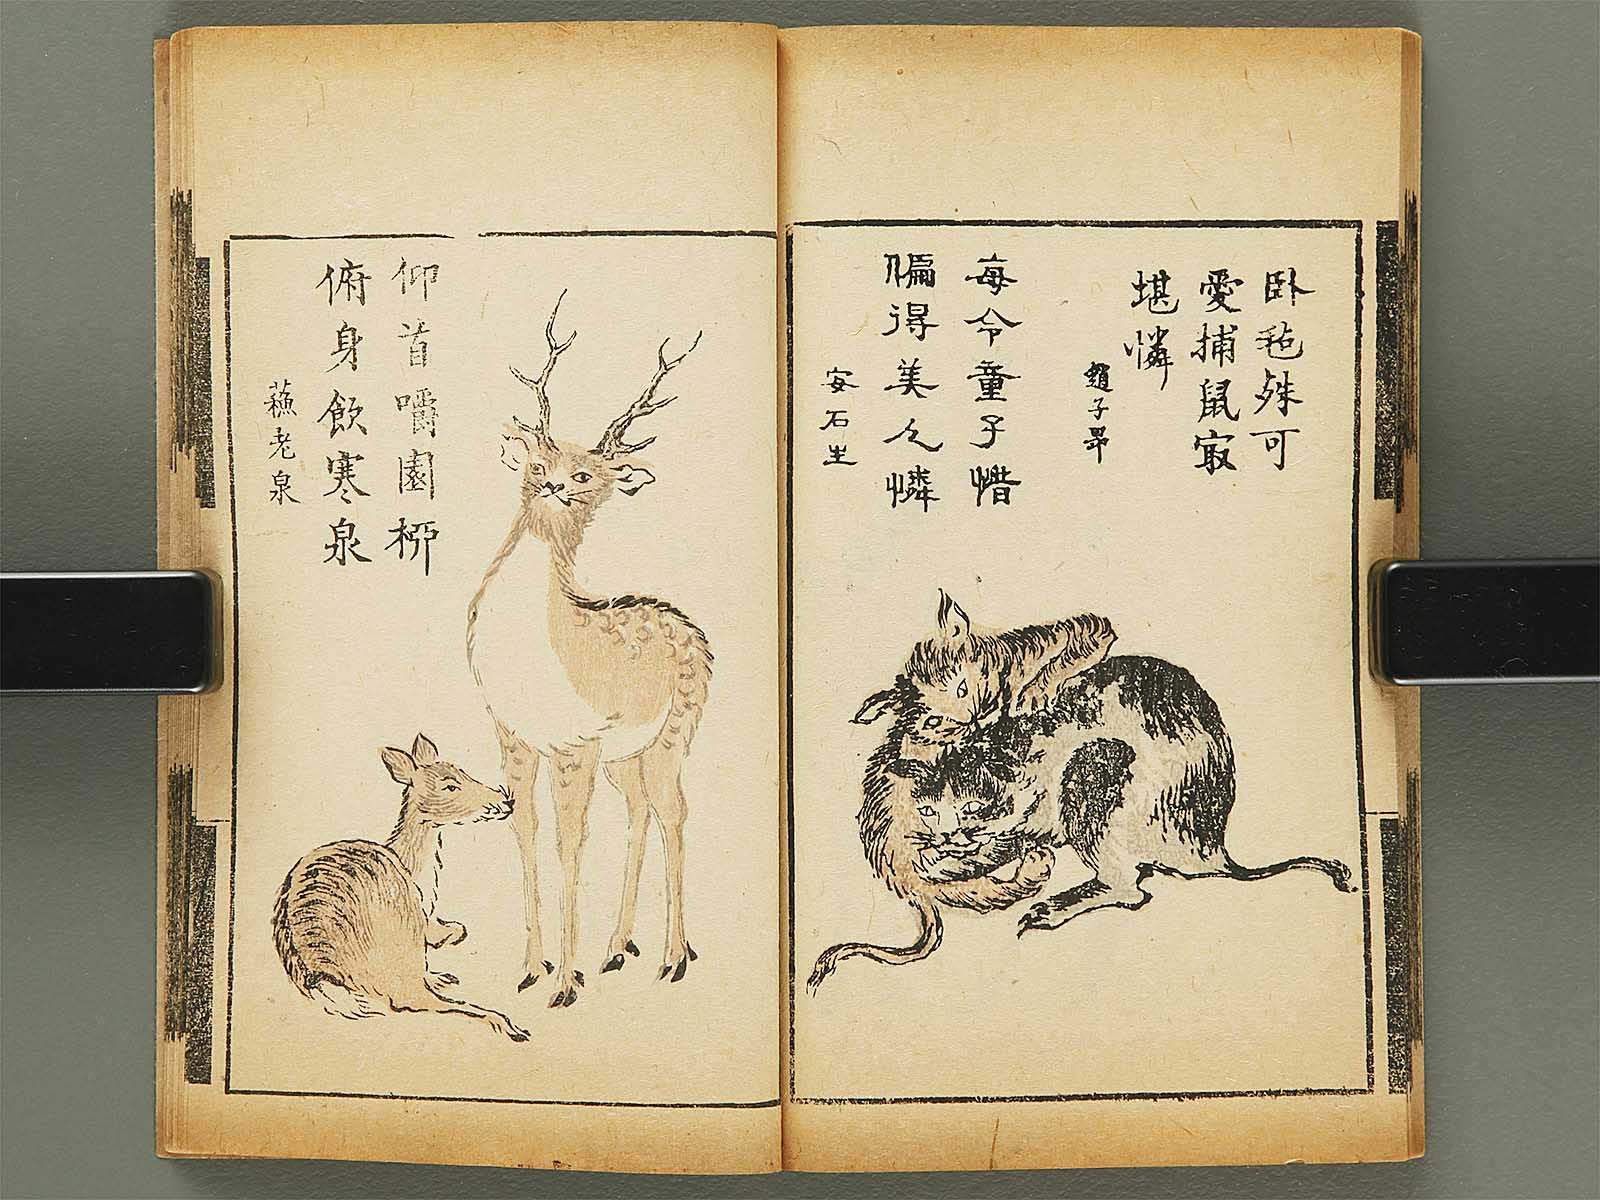 卧毡殊可
愛捕鼠㝡
堪憐
趙子昂
每令童子惜
偏得美人憐
安石生
仰首嚼園栁
俯身飲寒泉
蘓老泉